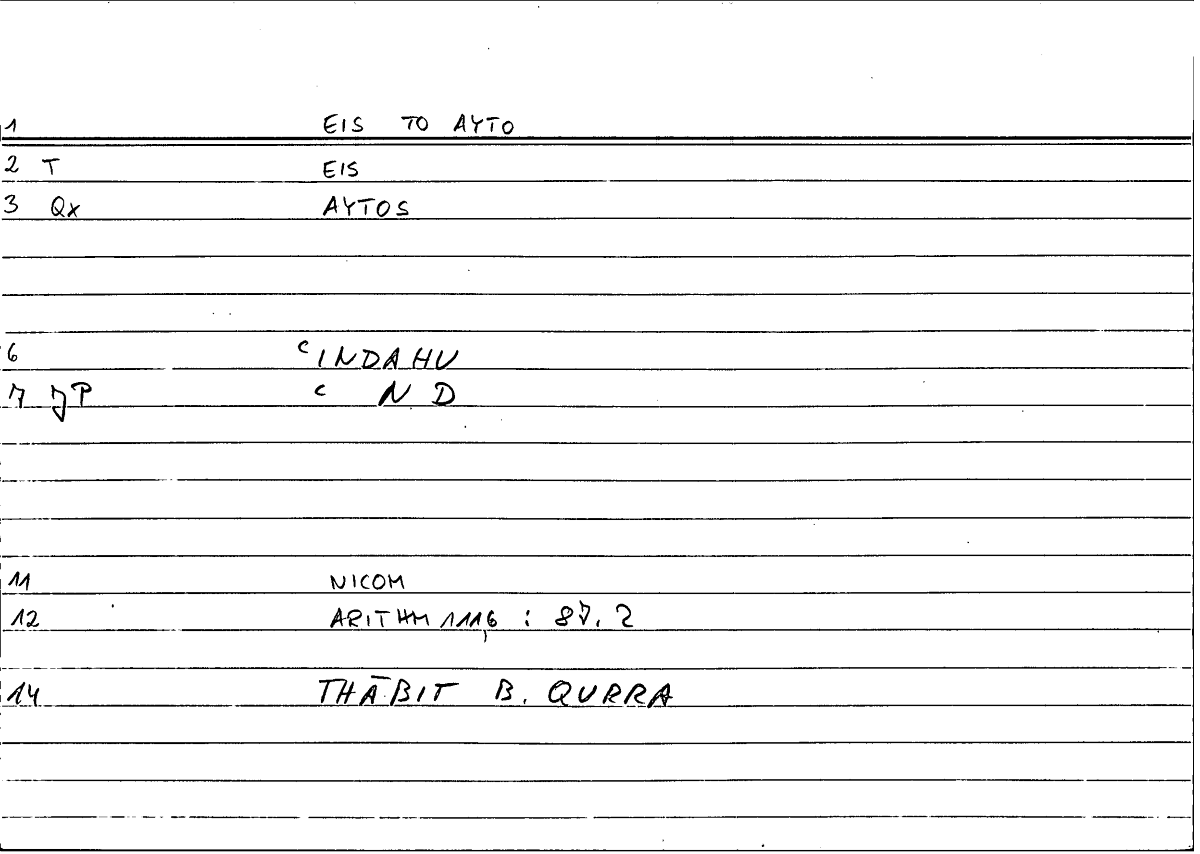 1 EIS TO AYTO
2 T EIS
3 Qx AYTOS
6 ʿINDAHU
7 JP ʿ N D
11 NICOM
12 ARITHM 1116 : 87, 2
14 THĀBIT B. QURRA